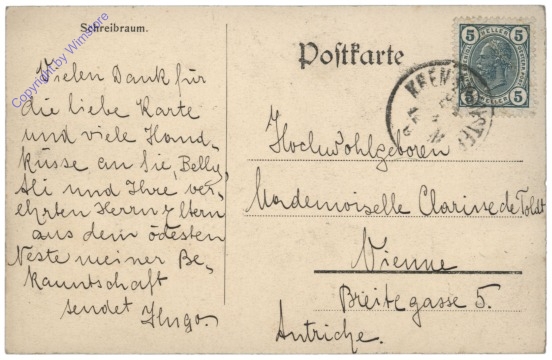 Schreibraum.
Copyright by Wimstore
Vielen Dank für
die liebe Karte
und viele Hand-
küsse an Sie, Belly,
Ali und Ihre ver-
ehrten Herrn Eltern
aus dem ödesten
Neste meiner Be-
kanntschaft
sendet Hugo.
Postkarte
5 HELLER 5
5 HELLER 5
KREMS
Hochwohlgeboren
Mademoiselle Clarine de Toldt
Vienne
Breitegasse 5.
Autriche.